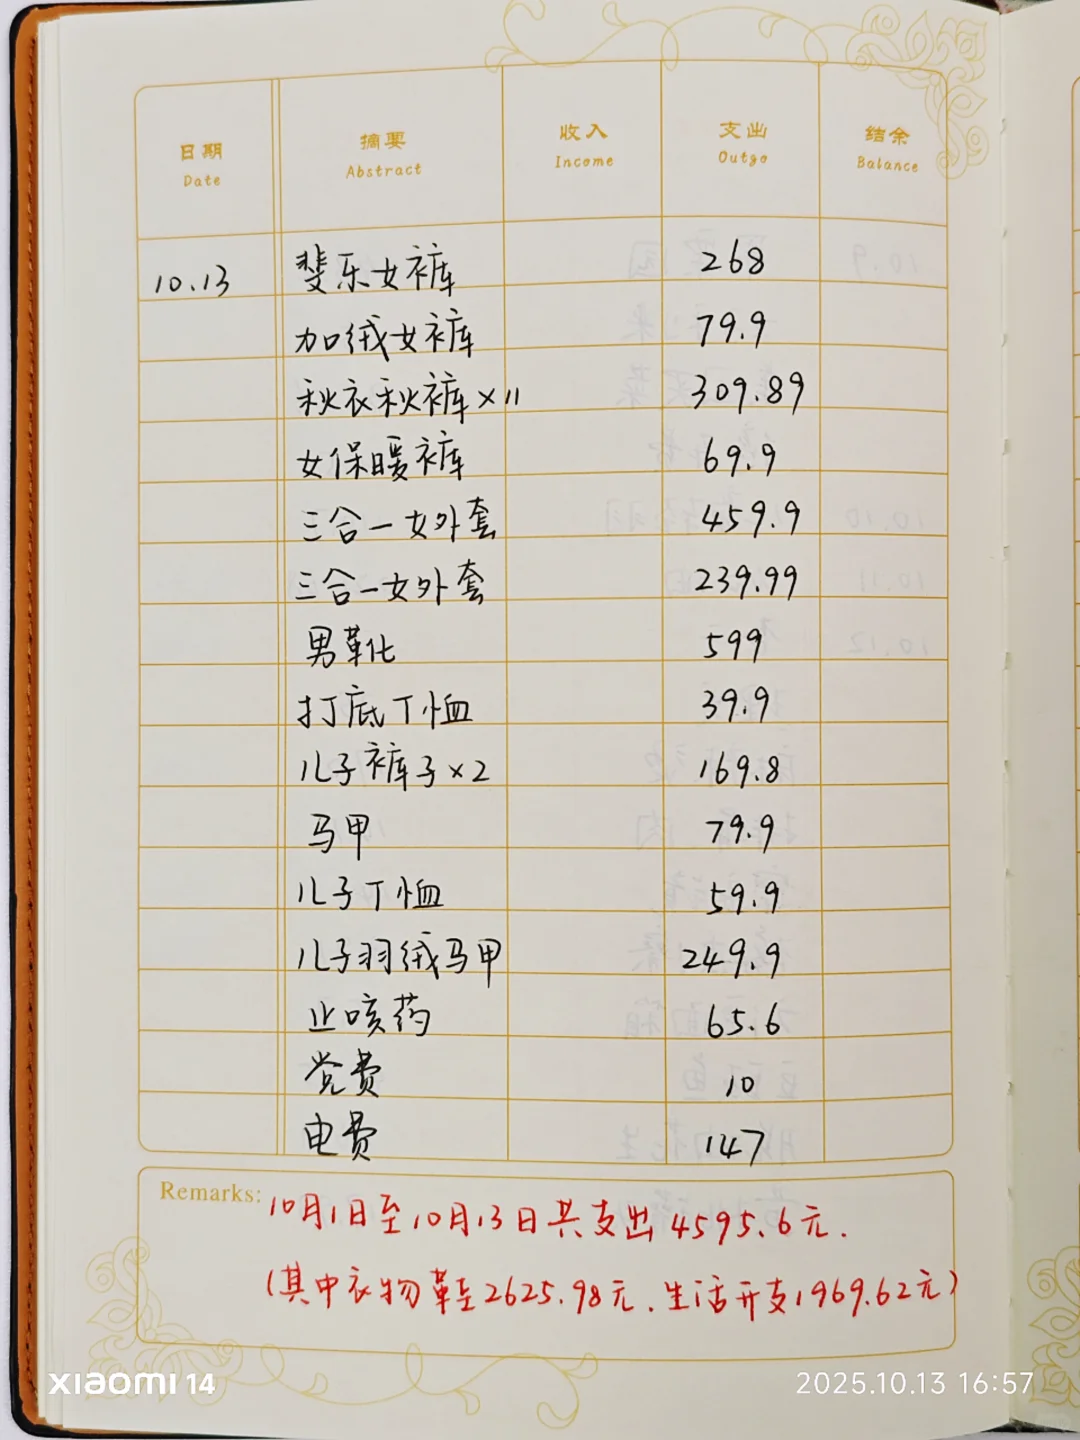 日期 摘要 收入 支出 结余
Date Abstract Income Outgo Balance
10.13 斐乐女裤 268
加绒女裤 79.9
秋衣秋裤×11 309.89
女保暖裤 69.9
三合一女外套 459.9
三合一女外套 239.99
男靴 599
打底T恤 39.9
儿子裤子×2 169.8
马甲 79.9
儿子T恤 59.9
儿子羽绒马甲 249.9
止咳药 65.6
党费 10
电费 147
Remarks: 10月1日至10月13日共支出4595.6元.
(其中衣物鞋2625.98元.生活开支1969.62元)
xiaomi 14
2025.10.13 16:57